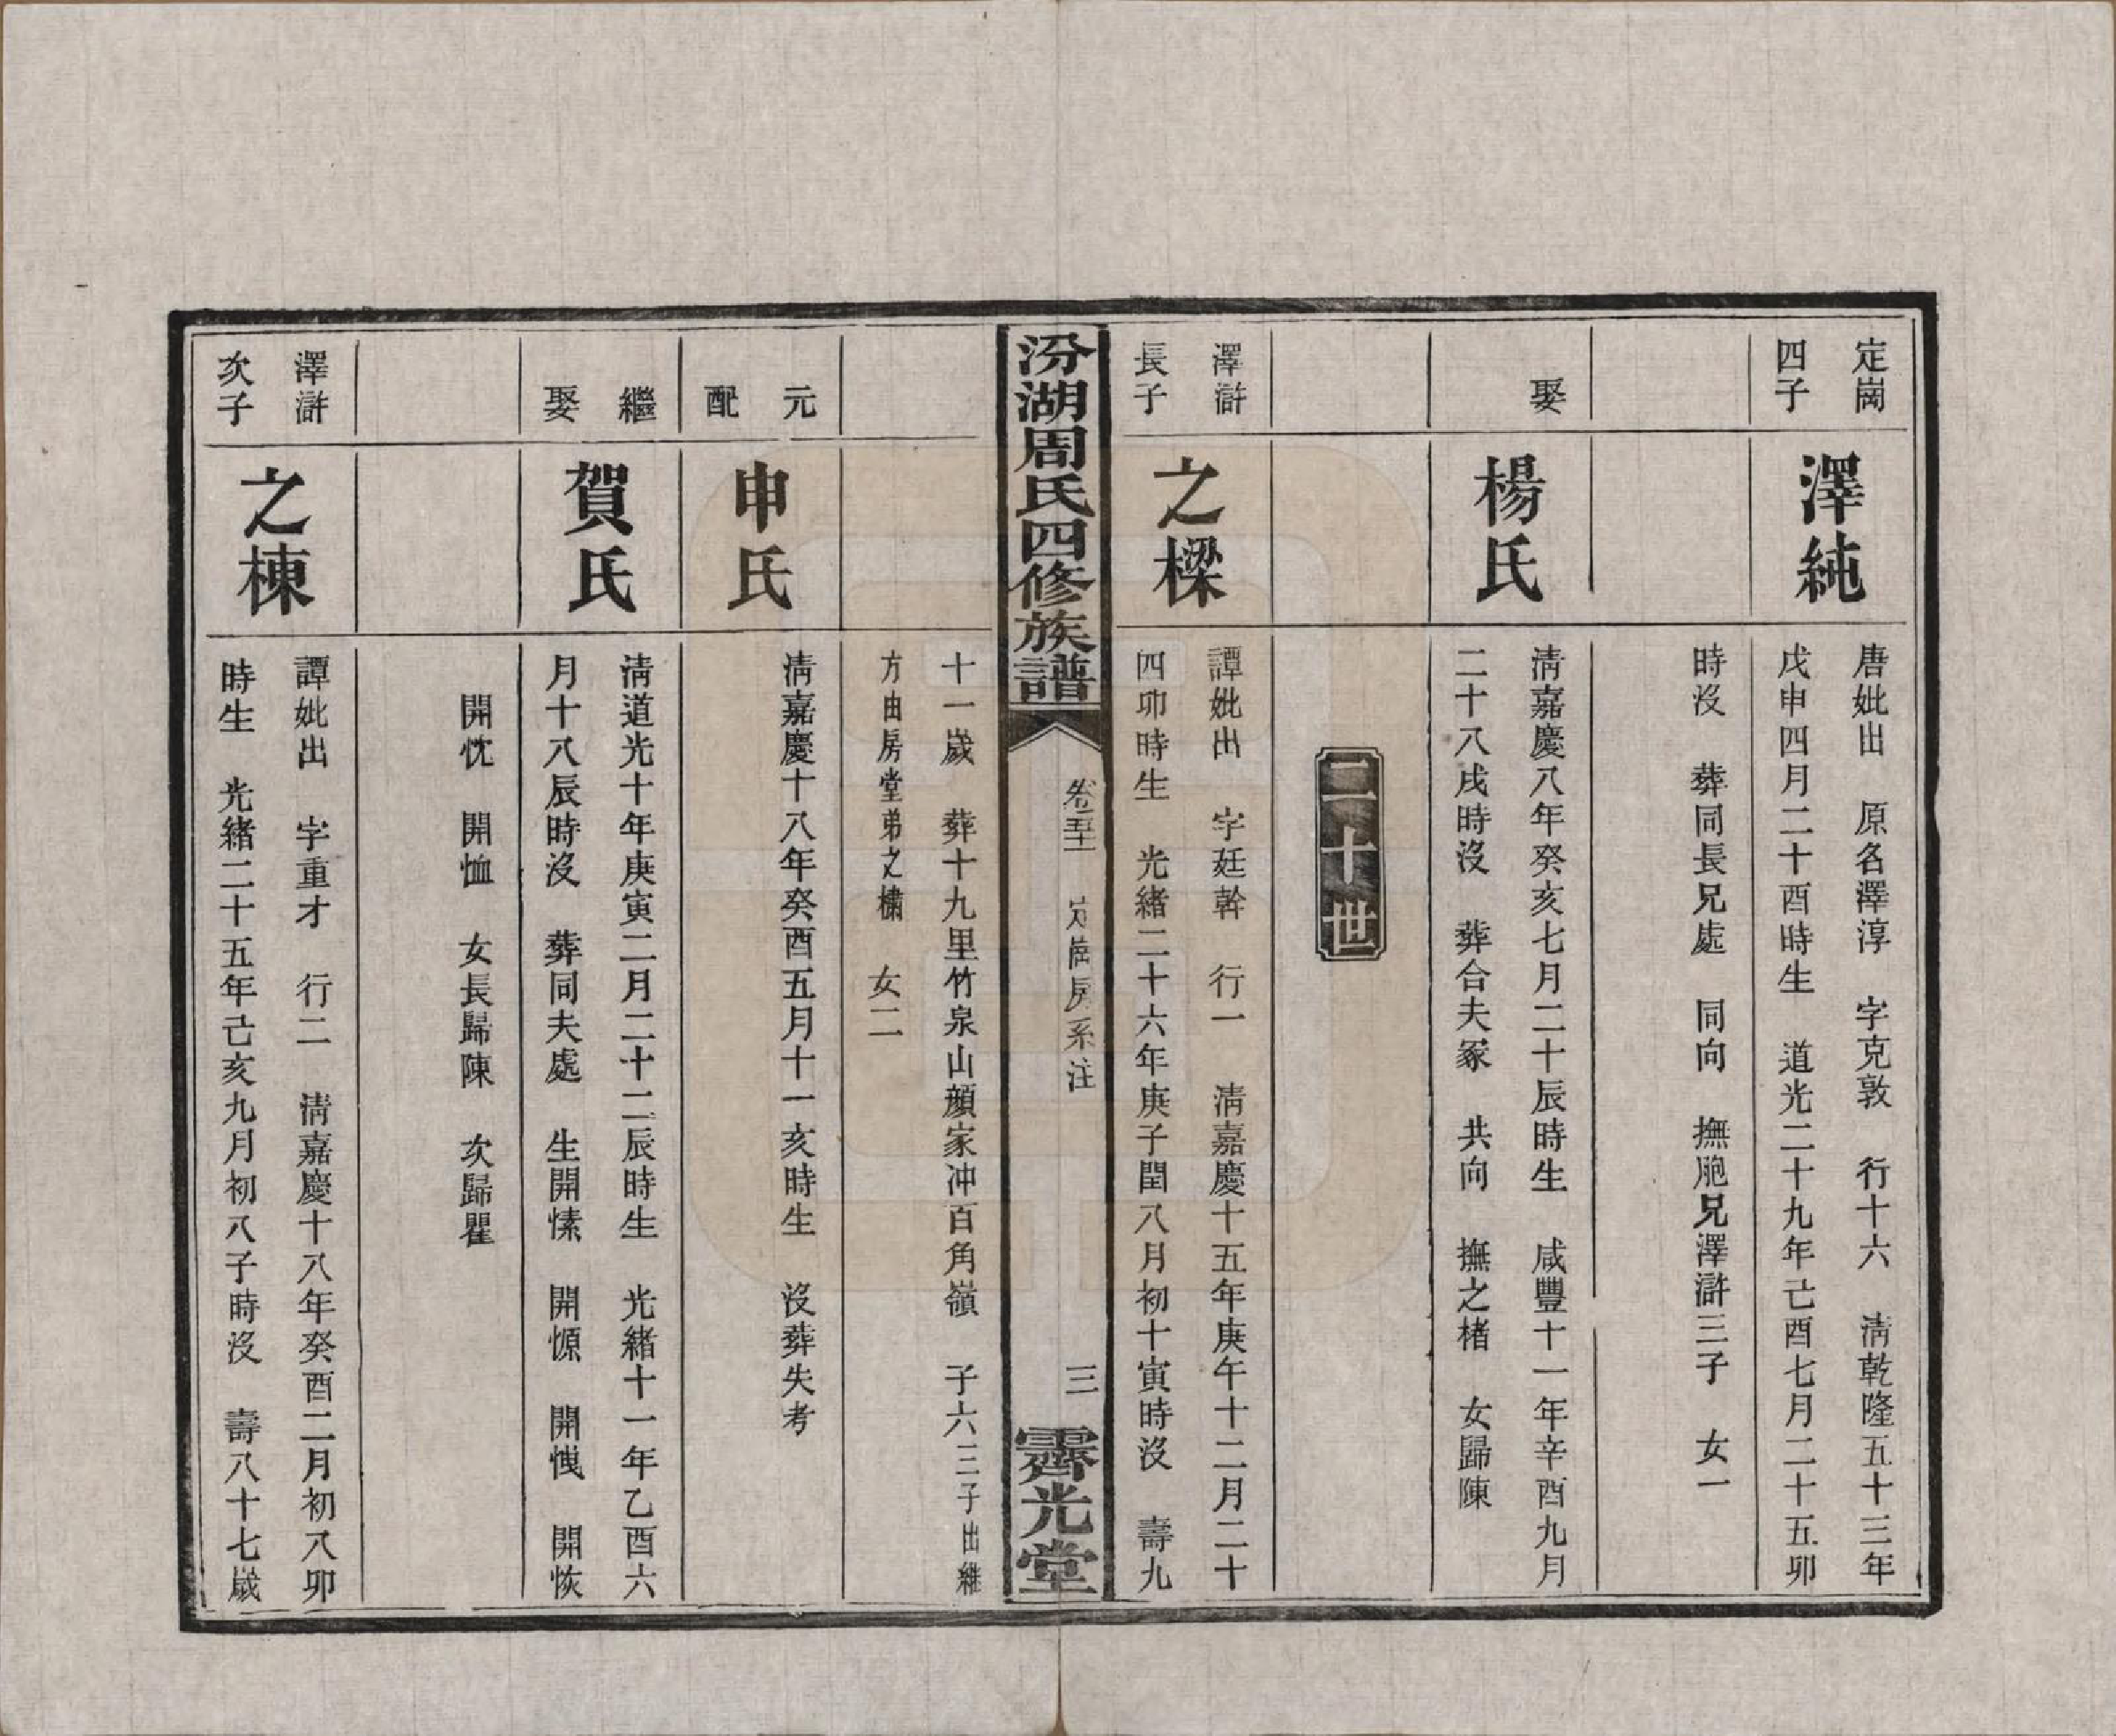 定崗
四子
澤純
唐妣出　原名澤淳　字克敦　行十六　淸乾隆五十三年
戊申四月二十酉時生　道光二十九年己酉七月二十五卯
時沒　葬同長兄處　同向　撫胞兄澤滸三子　女一
娶
楊氏
淸嘉慶八年癸亥七月二十辰時生　咸豐十一年辛酉九月
二十八戌時沒　葬合夫冢　共向　撫之楮　女歸陳
二十世
澤滸
長子
之樑
譚妣出　字廷幹　行一　淸嘉慶十五年庚午十二月二十
四卯時生　光緒二十六年庚子閏八月初十寅時沒　壽九
汾湖周氏四修族譜
卷五十　定崗房系注
三
霽光堂
十一歲　葬十九里竹泉山顔家冲百角嶺　子六三子出繼
方由房堂弟之橚　女二
元
配
申氏
淸嘉慶十八年癸酉五月十一亥時生　沒葬失考
繼
娶
賀氏
淸道光十年庚寅二月二十二辰時生　光緒十一年乙酉六
月十八辰時沒　葬同夫處　生開愫　開愿　開愧　開恢
開忱　開恤　女長歸陳　次歸瞿
澤滸
次子
之棟
譚妣出　字重才　行二　淸嘉慶十八年癸酉二月初八卯
時生　光緒二十五年己亥九月初八子時沒　壽八十七歲